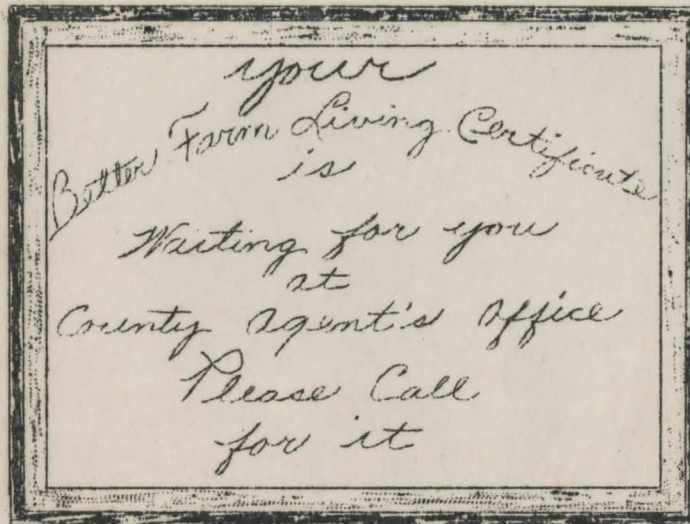 your
Better Farm Living Certificate
is
Waiting for you
at
County Agent's Office
Please Call
for it